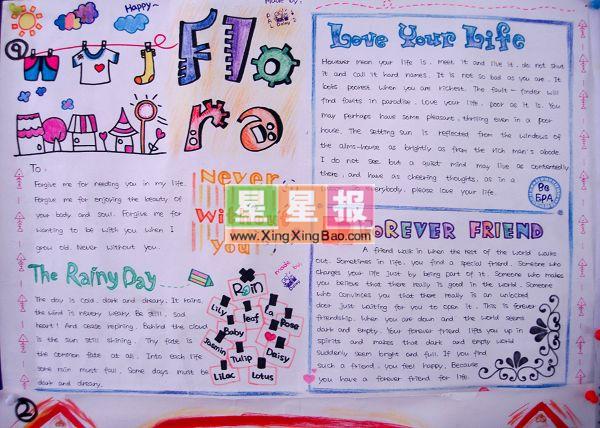 Happy~
made by:
Daisy
Flo
ra
Love Your Life
However mean your life is, meet it and live it, do not shut
it and call it hard names. It is not so bad as you are. It
looks poorest when you are richest. The fault-finder will
find faults in paradise. Love your life, poor as it is. You
may perhaps have some pleasant, thrilling even in a poor
house. The setting sun is reflected from the windows of
the alms-house as brightly as from the rich man's abode.
I do not see but a quiet mind may live as contentedly
there, and have as cheering thoughts, as in a
everybody, please love your life.
To:
Forgive me for needing you in my life.
Forgive me for enjoying the beauty of
your body and soul. Forgive me for
wanting to be with you when I
grow old. Never without you.
Never
Wi
you
星星报
www.XingXingBao.com
FOREVER FRIEND
A friend walk in when the rest of the world walks
out. Sometimes in life, you find a special friend. Someone who
changes your life just by being part of it. Someone who makes
you believe that there really is good in the world. Someone
who convinces you that there really is an unlocked
door just waiting for you to open it. This is forever
friendship. When you are down and the world seems
dark and empty. Your forever friend lifts you up in
spirits and makes that dark and empty world
suddenly seem bright and full. If you find
such a friend, you feel happy. Because
you have a forever friend for life.
The Rainy Day
The day is cold, dark and dreary. It rains,
the wind is never weary. Be still, sad
heart! And cease repining. Behind the cloud
is the sun still shining. Thy fate is
the common fate of all. Into each life
some rain must fall. Some days must be
dark and dreary.
made by:
Rain
Lily
leaf
La Rose
Baby
Jasmin
Tulip
Daisy
Lilac
Lotus